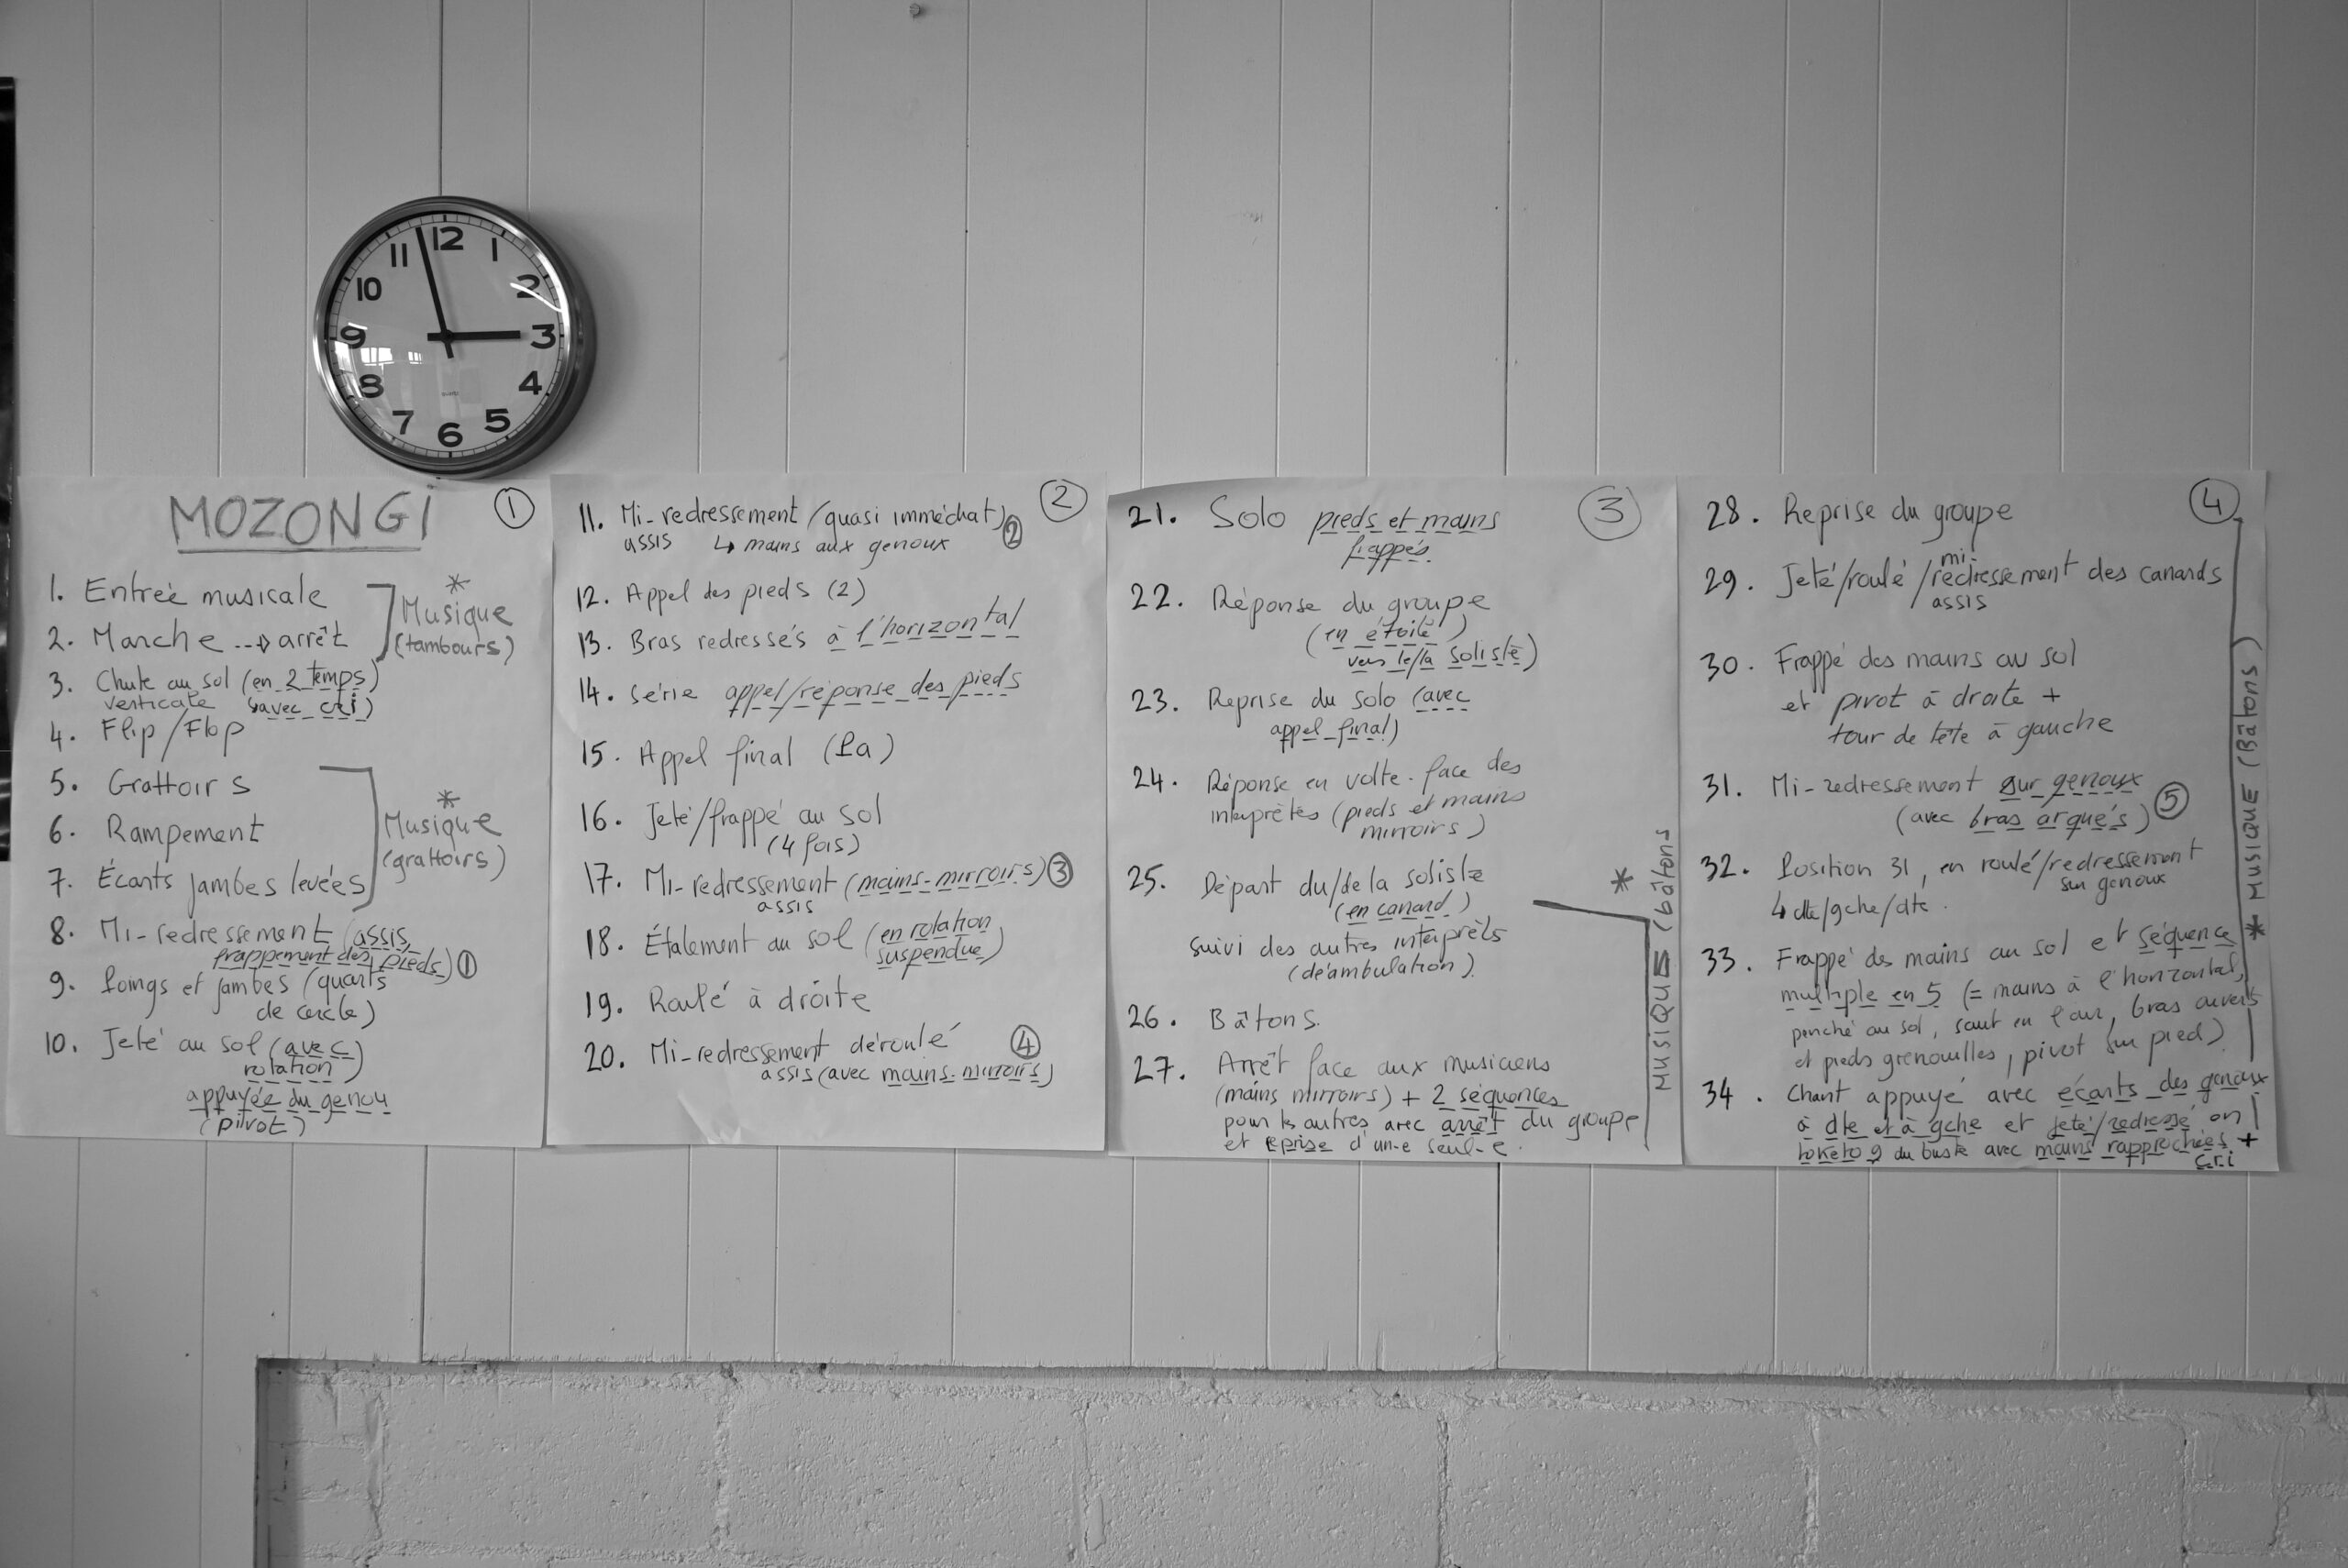 12
1
2
3
4
5
6
7
8
9
10
11
QUARTZ
MOZONGI
①
1. Entrée musicale
2. Marche --→ arrêt
* Musique
(tambours)
3. Chute au sol (en 2 temps)
verticale (avec cri)
4. Flip/Flop
5. Grattoirs
6. Rampement
7. Écarts jambes levées
* Musique
(grattoirs)
8. Mi-redressement (assis,
frappement des pieds) ①
9. Poings et jambes (quarts
de cercle)
10. Jeté au sol (avec
rotation)
appuyée du genou
(pivot)
②
11. Mi-redressement (quasi immédiat) ②
assis ↳ mains aux genoux
12. Appel des pieds (2)
13. Bras redressés à l'horizontal
14. Série appel/réponse des pieds
15. Appel final (La)
16. Jeté/frappé au sol
(4 fois)
17. Mi-redressement (mains-mirroirs) ③
assis
18. Étalement au sol (en rotation
suspendue)
19. Roulé à droite
20. Mi-redressement déroulé ④
assis (avec mains-mirroirs)
③
21. Solo pieds et mains
frappés.
22. Réponse du groupe
(en étoile)
vers le/la soliste)
23. Reprise du solo (avec
appel final)
24. Réponse en volte-face des
interprètes (pieds et mains
mirroirs)
25. Départ du/de la soliste
(en canard)
suivi des autres interprèts
(déambulation).
26. Bâtons.
27. Arrêt face aux musiciens
(mains mirroirs) + 2 séquences
pour les autres avec arrêt du groupe
et reprise d'un-e seul-e.
* MUSIQUE (bâtons
④
28. Reprise du groupe
29. Jeté/roulé/mi-redressement des canards
assis
30. Frappé des mains au sol
et pivot à droite +
tour de tête à gauche
31. Mi-redressement sur genoux
(avec bras arqués) ⑤
32. Position 31, en roulé/redressement
sur genoux
↳ dte/gche/dte.
33. Frappé des mains au sol et séquence
multiple en 5 (= mains à l'horizontal,
penché au sol, saut en l'air, bras ouverts
et pieds grenouilles, pivot sur pied)
34. Chant appuyé avec écarts des genoux
à dte et à gche et jeté/redressé en
du buste avec mains rapprochées +
cri
* MUSIQUE (Bâtons)